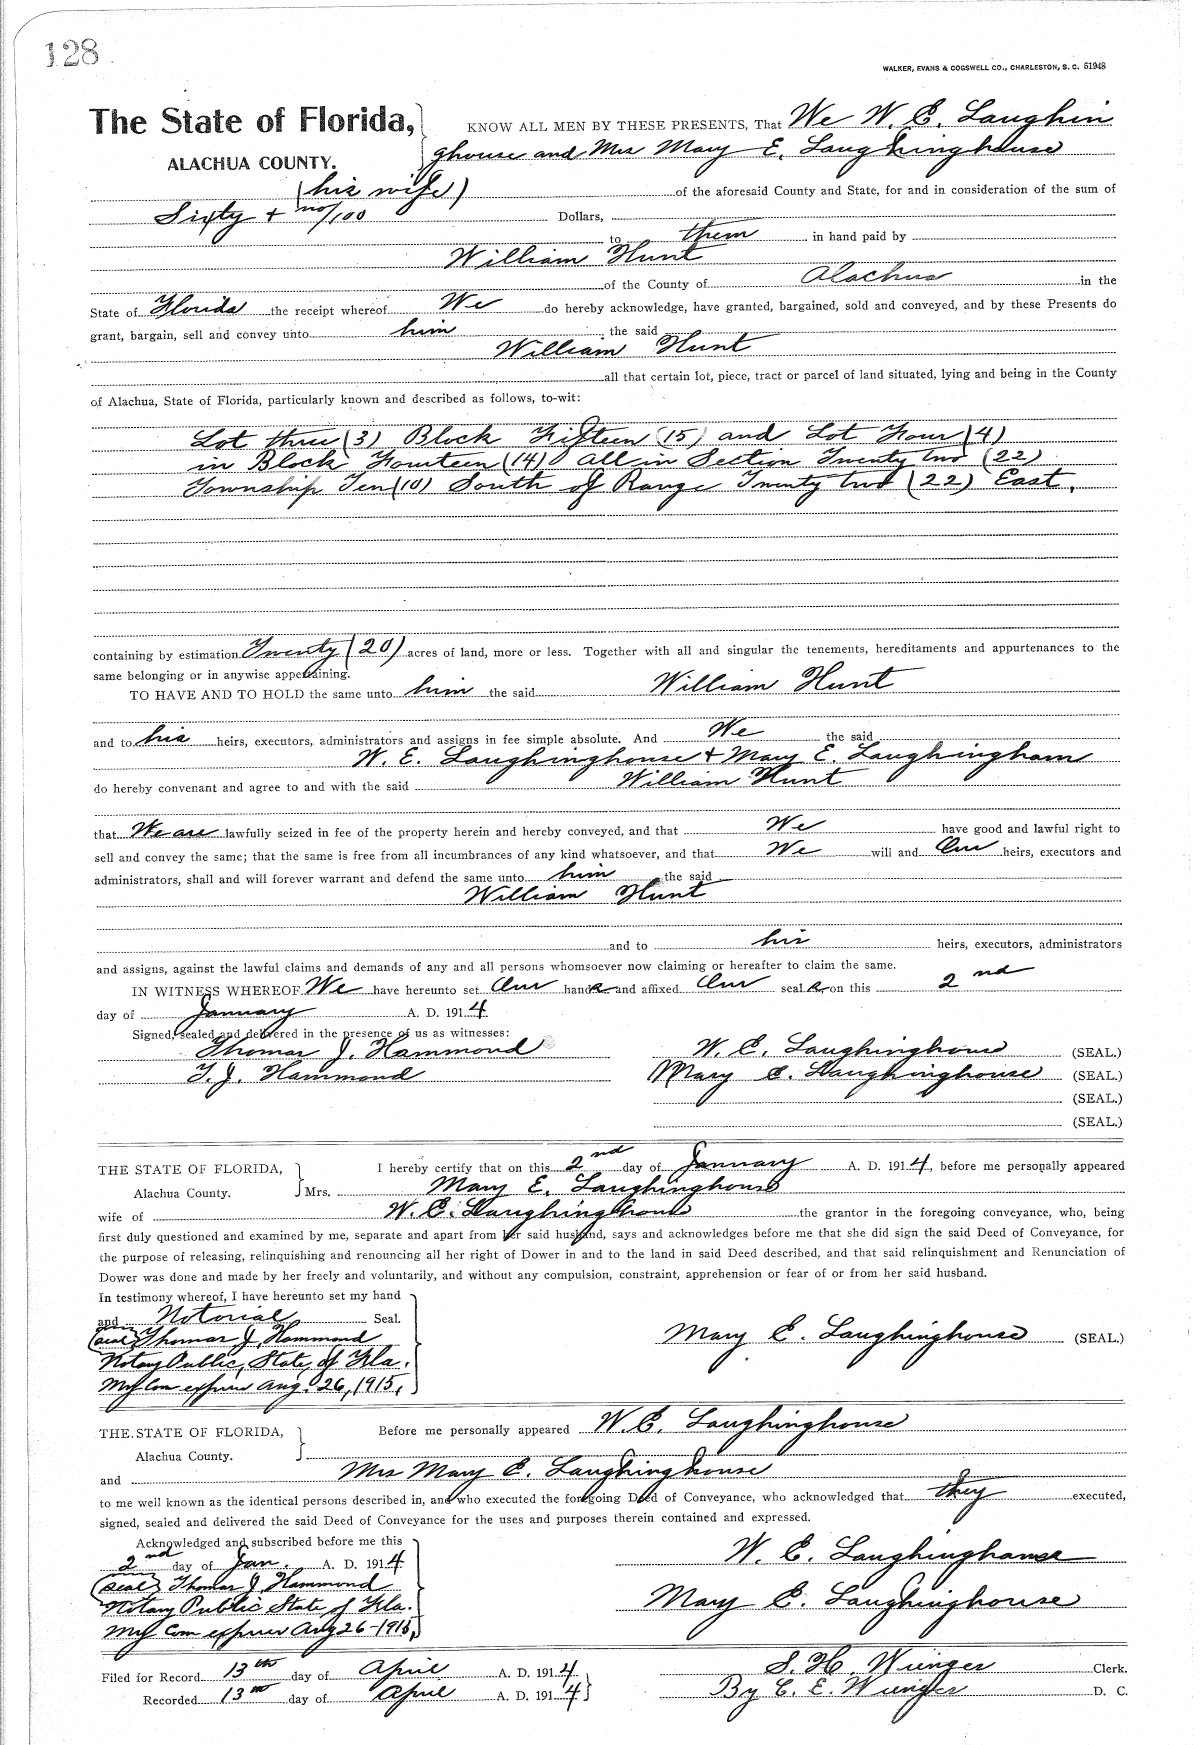 128
WALKER, EVANS & COGSWELL CO., CHARLESTON, S. C. 51948
The State of Florida,
ALACHUA COUNTY.
KNOW ALL MEN BY THESE PRESENTS, That We W. E. Laughin
ghouse and Mrs Mary E. Laughinghouse
(his wife) of the aforesaid County and State, for and in consideration of the sum of
Sixty + no/100 Dollars,
to them in hand paid by
William Hunt
of the County of Alachua in the
State of Florida the receipt whereof We do hereby acknowledge, have granted, bargained, sold and conveyed, and by these Presents do
grant, bargain, sell and convey unto him the said
William Hunt
all that certain lot, piece, tract or parcel of land situated, lying and being in the County
of Alachua, State of Florida, particularly known and described as follows, to-wit:
Lot three (3) Block Fifteen (15) and Lot Four (4)
in Block Fourteen (14) all in Section Twenty two (22)
Township Ten (10) South of Range Twenty two (22) East.
containing by estimation Twenty (20) acres of land, more or less. Together with all and singular the tenements, hereditaments and appurtenances to the
same belonging or in anywise appertaining.
TO HAVE AND TO HOLD the same unto him the said William Hunt
and to his heirs, executors, administrators and assigns in fee simple absolute. And We the said
W. E. Laughinghouse + Mary E. Laughingham
do hereby convenant and agree to and with the said William Hunt
that We are lawfully seized in fee of the property herein and hereby conveyed, and that We have good and lawful right to
sell and convey the same; that the same is free from all incumbrances of any kind whatsoever, and that We will and Our heirs, executors and
administrators, shall and will forever warrant and defend the same unto him the said
William Hunt
and to his heirs, executors, administrators
and assigns, against the lawful claims and demands of any and all persons whomsoever now claiming or hereafter to claim the same.
IN WITNESS WHEREOF We have hereunto set Our hands and affixed Our seals on this 2nd
day of January A. D. 1914
Signed, sealed and delivered in the presence of us as witnesses:
Thomas J. Hammond W. E. Laughinghouse (SEAL.)
T. J. Hammond Mary E. Laughinghouse (SEAL.)
(SEAL.)
(SEAL.)
THE STATE OF FLORIDA,
Alachua County.
I hereby certify that on this 2nd day of January A. D. 1914, before me personally appeared
Mrs. Mary E. Laughinghouse
wife of W. E. Laughinghouse the grantor in the foregoing conveyance, who, being
first duly questioned and examined by me, separate and apart from her said husband, says and acknowledges before me that she did sign the said Deed of Conveyance, for
the purpose of releasing, relinquishing and renouncing all her right of Dower in and to the land in said Deed described, and that said relinquishment and Renunciation of
Dower was done and made by her freely and voluntarily, and without any compulsion, constraint, apprehension or fear of or from her said husband.
In testimony whereof, I have hereunto set my hand
and Notorial Seal.
(Seal) Thomas J. Hammond
Mary E. Laughinghouse (SEAL.)
Notary Public, State of Fla.
My Com expires Aug. 26, 1915,
THE STATE OF FLORIDA,
Alachua County.
Before me personally appeared W. E. Laughinghouse
and Mrs Mary E. Laughinghouse
to me well known as the identical persons described in, and who executed the foregoing Deed of Conveyance, who acknowledged that they executed,
signed, sealed and delivered the said Deed of Conveyance for the uses and purposes therein contained and expressed.
Acknowledged and subscribed before me this
2nd day of Jan. A. D. 1914
W. E. Laughinghouse
(Seal) Thomas J Hammond
Mary E. Laughinghouse
Notary Public State of Fla.
My Com expires Aug 26-1915,
Filed for Record 13th day of April A. D. 1914
S. H. Wienges Clerk.
Recorded 13th day of April A. D. 1914
By C. E. Wienges D. C.